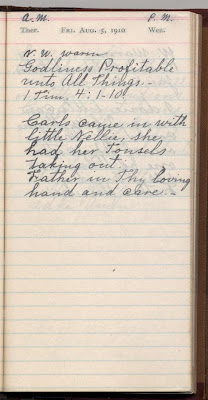 A.M. P.M.
Ther. Fri. Aug. 5, 1910 Wea.
V. W. warm
Godliness Profitable
unto All Things.-
1 Tim. 4:1-10
Carls came in with
little Nellie, she
had her Tonsels
taking out
Father in Thy loving
hand and care.-